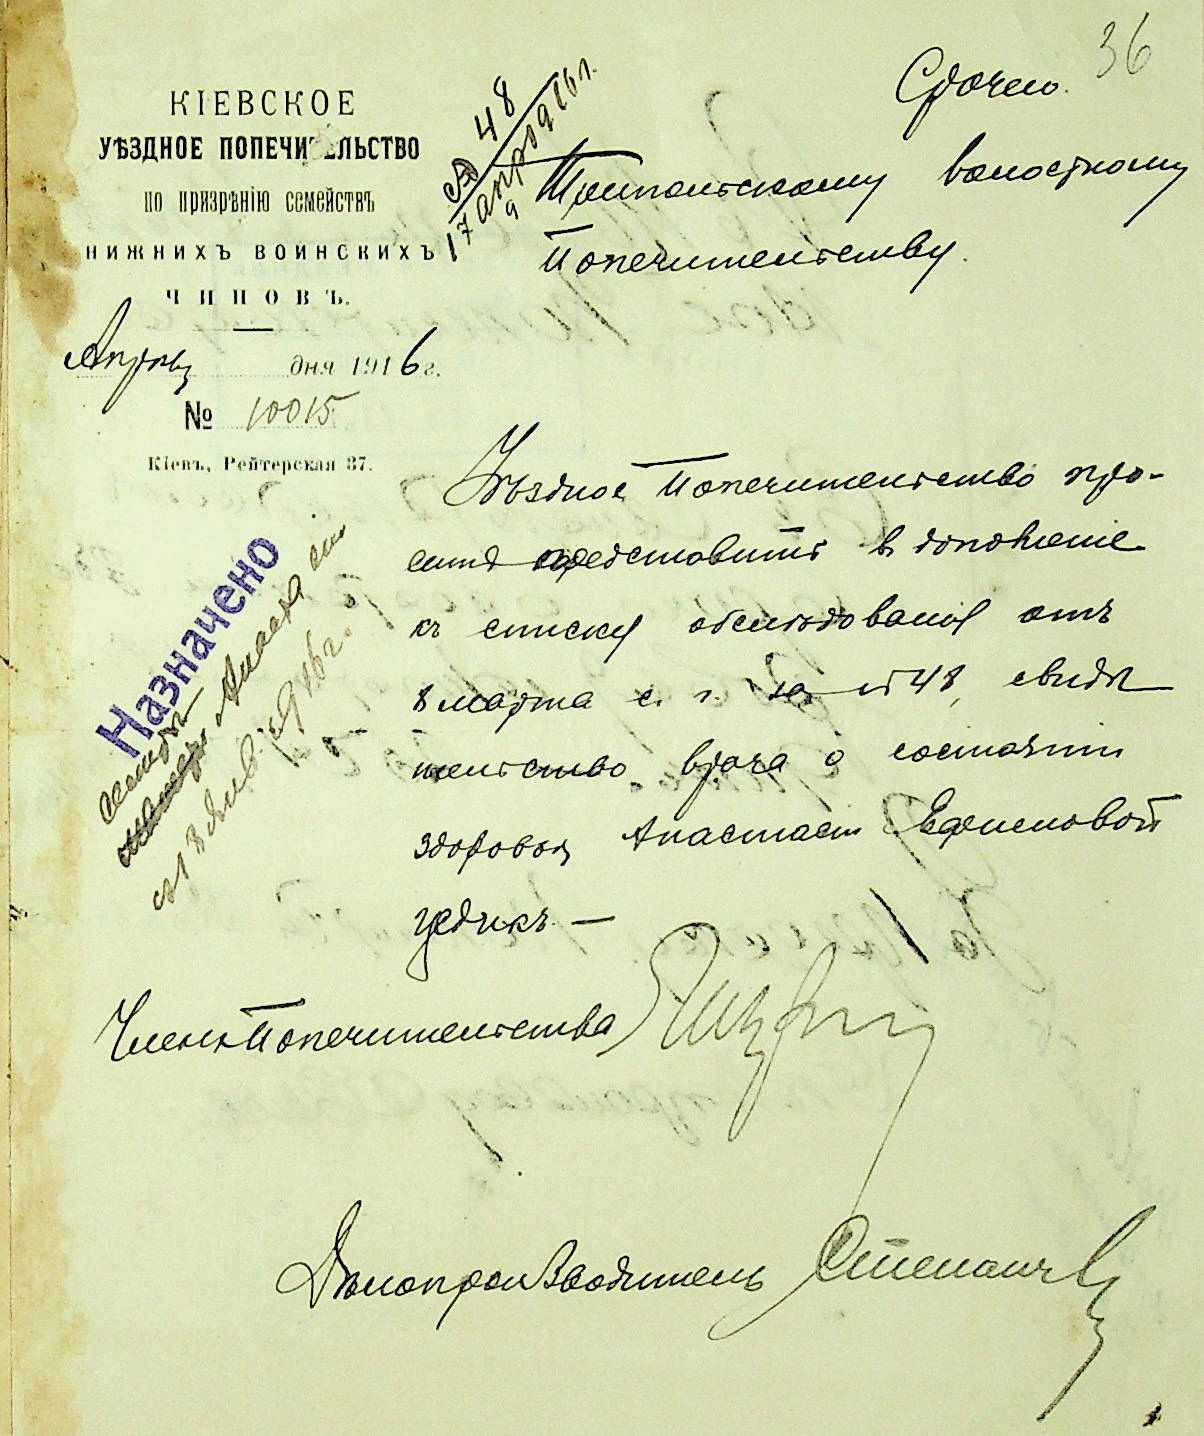 36
Срочно.
КІЕВСКОЕ
УѢЗДНОЕ ПОПЕЧИТЕЛЬСТВО
по призрѣнію семействъ
НИЖНИХЪ ВОИНСКИХЪ
ЧИНОВЪ.
Апрѣля дня 1916 г.
№ 10015
Кіевъ, Рейтерская 37.
48
17 апрѣля 916 г.
волостному
Попечительству.
Уѣздное Попечительство про-
ситъ представить в дополненіе
къ списку обслѣдованія отъ
8 марта с. г. за № 48, свидѣ
тельство врача о состояніи
здоровья Анастасіи Ефимовой
Назначено
сестрѣ
матери
съ 18 янв. 1916 г.
Членъ Попечительства
Дѣлопроизводитель